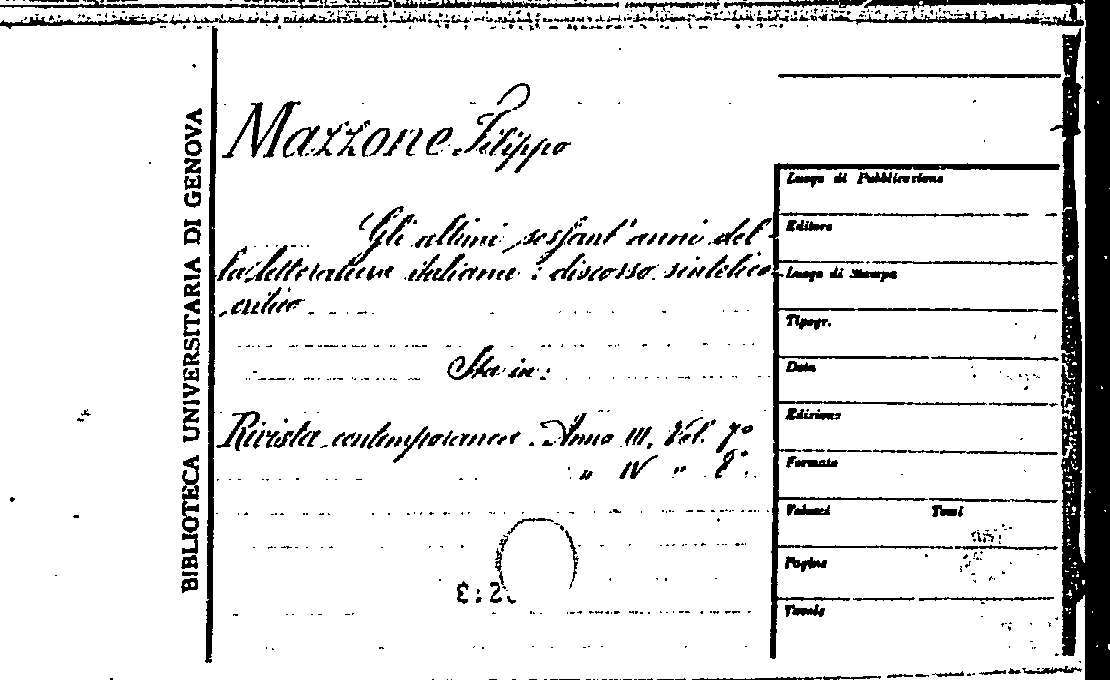 BIBLIOTECA UNIVERSITARIA DI GENOVA
Mazzone Filippo
Gli ultimi sessant'anni del-
la letteratura italiana: discorso sintetico-
critico
Sta in:
Rivista contemporanea. Anno III, Vol. 7º
" IV " 8º.
Luogo di Pubblicazione
Editore
Luogo di Stampa
Tipogr.
Data
Edizione
Formato
Volumi Tomi
Pagine
Tavole